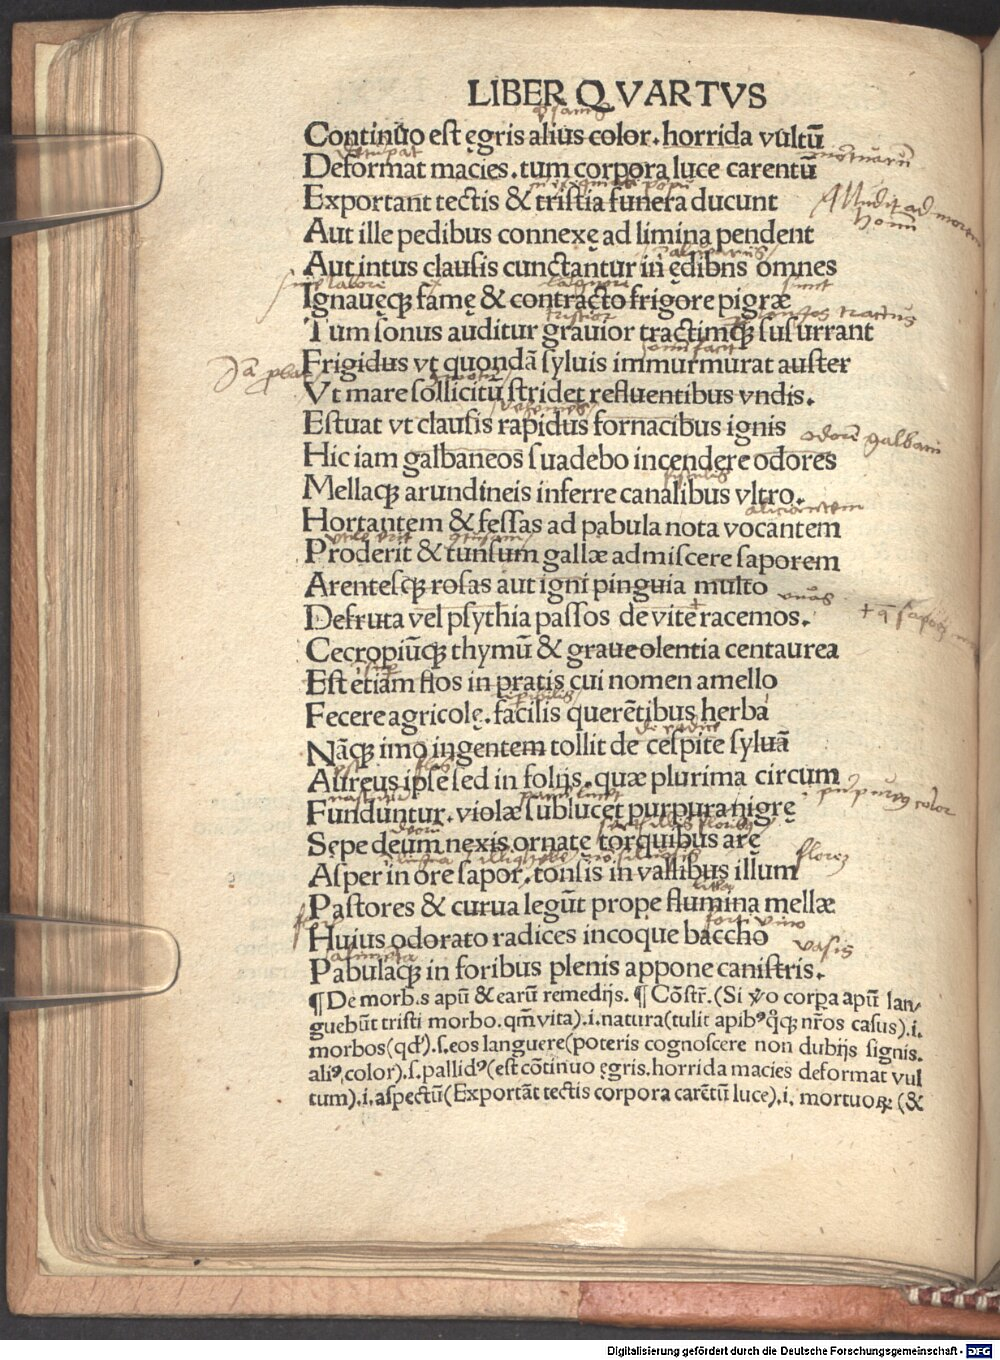 LIBER QVARTVS
Continuo est ęgris alius color. horrida vultū
Deformat macies. tum corpora luce carentū
Exportant tectis & tristia funera ducunt
Aut ille pedibus connexę ad limina pendent
Aut intus clausis cunctantur in ędibns omnes
Ignauęqꝫ famę & contracto frigore pigræ
Tum sonus auditur grauior tractimqꝫ susurrant
Frigidus vt quondā syluis immurmurat auster
Vt mare sollicitū stridet refluentibus vndis.
Estuat vt clausis rapidus fornacibus ignis
odorē galbani
Hic iam galbaneos suadebo incendere odores
Mellaqꝫ arundineis inferre canalibus vltro.
Hortantem & fessas ad pabula nota vocantem
Proderit & tunsum gallæ admiscere saporem
Arentesqꝫ rosas aut igni pinguia multo
vuas
Defruta vel psythia passos de vite racemos.
Cecropiūqꝫ thymū & graueolentia centaurea
Est etiam flos in pratis cui nomen amello
Fecere agricolę. facilis querētibus herba
de radice
Nāqꝫ imo ingentem tollit de cespite syluā
est flos
Aureus ipse sed in folijs. quæ plurima circum
purpureꝰ color
Funduntur. violæ sublucet purpura nigrę
Sępe deum nexis ornatę torquibus arę
Asper in ore sapor. tonsis in vallibus illum
Pastores & curua legūt prope flumina mellæ
forti vino
Huius odorato radices incoque baccho
vasis
Pabulaqꝫ in foribus plenis appone canistris.
¶ De morb.s apū & earū remedijs. ¶ Cōstr. (Si ṽo corpa apū lan⸗
guebūt tristi morbo. qm̄ vita).i.natura(tulit apibꝰ qͦqꝫ nr̄os casus).i.
morbos(qd').s.eos languere(poteris cognoscere non dubijs signis.
aliꝰ color).s.pallidꝰ(est cōtinuo ęgris.horrida macies deformat vul
tum).i.aspectū(Exportāt tectis corpora carētū luce).i. mortuoꝝ (&
Digitalisierung gefördert durch die Deutsche Forschungsgemeinschaft - DFG